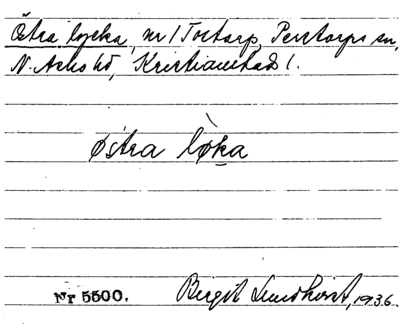 Östra lycka, nr 1 Tostarp, Perstorps sn,
N. Åsbo hd, Kristianstads l.
östra lø̀ka
Nr 5500.
Birgit Lundkvist, 1936.